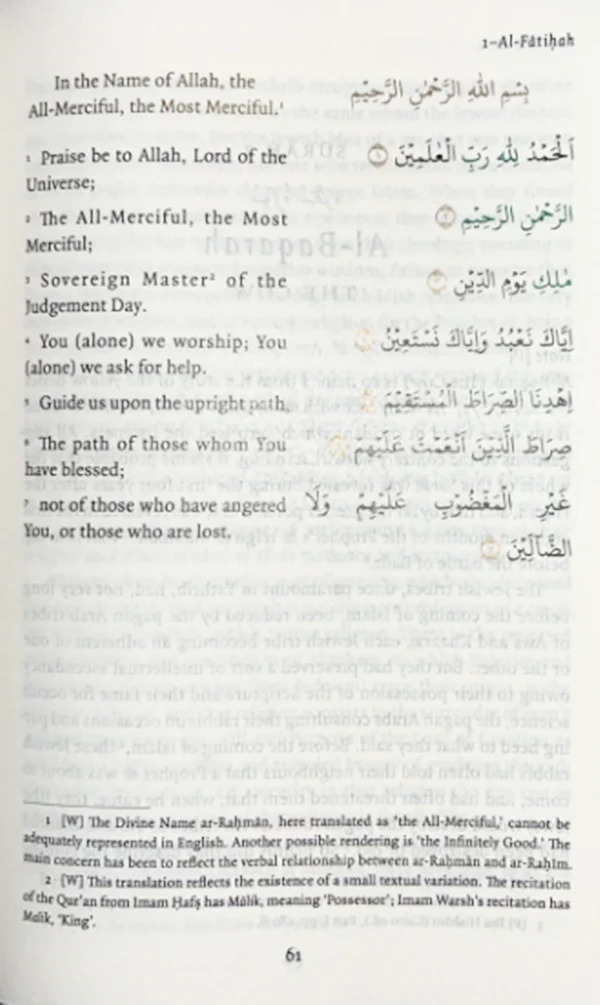 1–Al-Fātiḥah
In the Name of Allah, the
All-Merciful, the Most Merciful.¹
1 Praise be to Allah, Lord of the
Universe;
2 The All-Merciful, the Most
Merciful;
3 Sovereign Master² of the
Judgement Day.
4 You (alone) we worship; You
(alone) we ask for help.
5 Guide us upon the upright path,
6 The path of those whom You
have blessed;
7 not of those who have angered
You, or those who are lost.
بِسْمِ اللّٰهِ الرَّحْمٰنِ الرَّحِيْمِ
اَلْحَمْدُ لِلّٰهِ رَبِّ الْعٰلَمِيْنَ
الرَّحْمٰنِ الرَّحِيْمِ
مٰلِكِ يَوْمِ الدِّيْنِ
اِيَّاكَ نَعْبُدُ وَاِيَّاكَ نَسْتَعِيْنُ
اِهْدِنَا الصِّرَاطَ الْمُسْتَقِيْمَ
صِرَاطَ الَّذِيْنَ اَنْعَمْتَ عَلَيْهِمْ
غَيْرِ الْمَغْضُوْبِ عَلَيْهِمْ وَلَا
الضَّآلِّيْنَ
1 [W] The Divine Name ar-Raḥmān, here translated as 'the All-Merciful,' cannot be
adequately represented in English. Another possible rendering is 'the Infinitely Good.' The
main concern has been to reflect the verbal relationship between ar-Raḥmān and ar-Raḥīm.
2 [W] This translation reflects the existence of a small textual variation. The recitation
of the Qur'an from Imam Ḥafṣ has Mālik, meaning 'Possessor'; Imam Warsh's recitation has
Malik, 'King'.
61